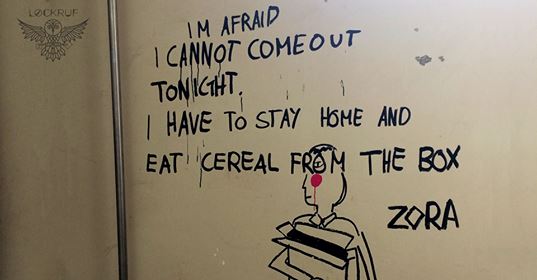 LOCKRUF
IM AFRAID
I CANNOT COME OUT
TONIGHT.
I HAVE TO STAY HOME AND
EAT CEREAL FROM THE BOX
ZORA